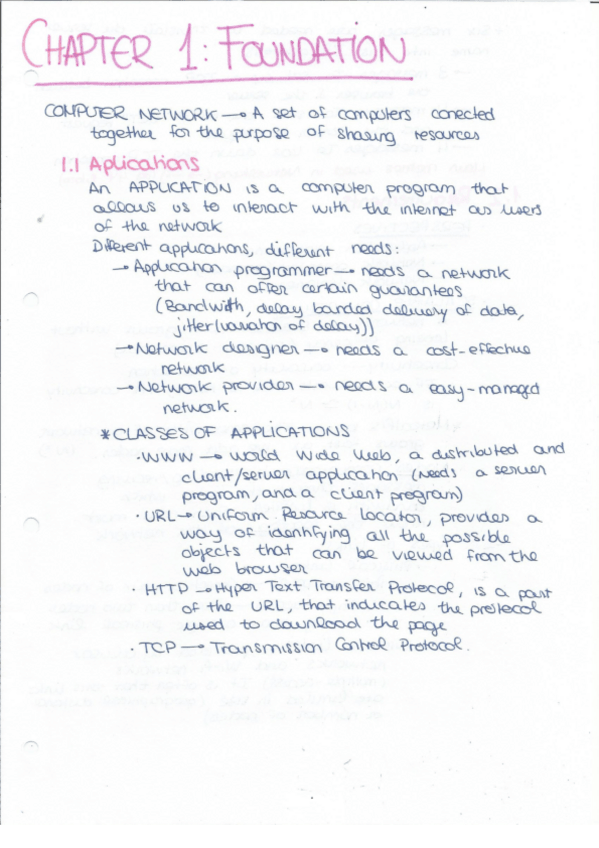 CHAPTER 1: FOUNDATION
COMPUTER NETWORK → A set of computers conected
together for the purpose of sharing resources
1.1 Aplications
An APPLICATION is a computer program that
allows us to interact with the internet as users
of the network
Different applications, different needs:
→ Application programmer → needs a network
that can offer certain guarantees
(Bandwith, delay bonded delivery of data,
jitter (variation of delay))
→ Network designer → needs a cost-effective
network
→ Network provider → needs a easy-managed
network.
* CLASSES OF APPLICATIONS
· WWW → World Wide Web, a distributed and
client/server application (needs a server
program, and a client program)
· URL → Uniform Resource Locator, provides a
way of identifying all the possible
objects that can be viewed from the
web browser
· HTTP → Hyper Text Transfer Protocol, is a part
of the URL, that indicates the protocol
used to download the page
· TCP → Transmission Control Protocol.